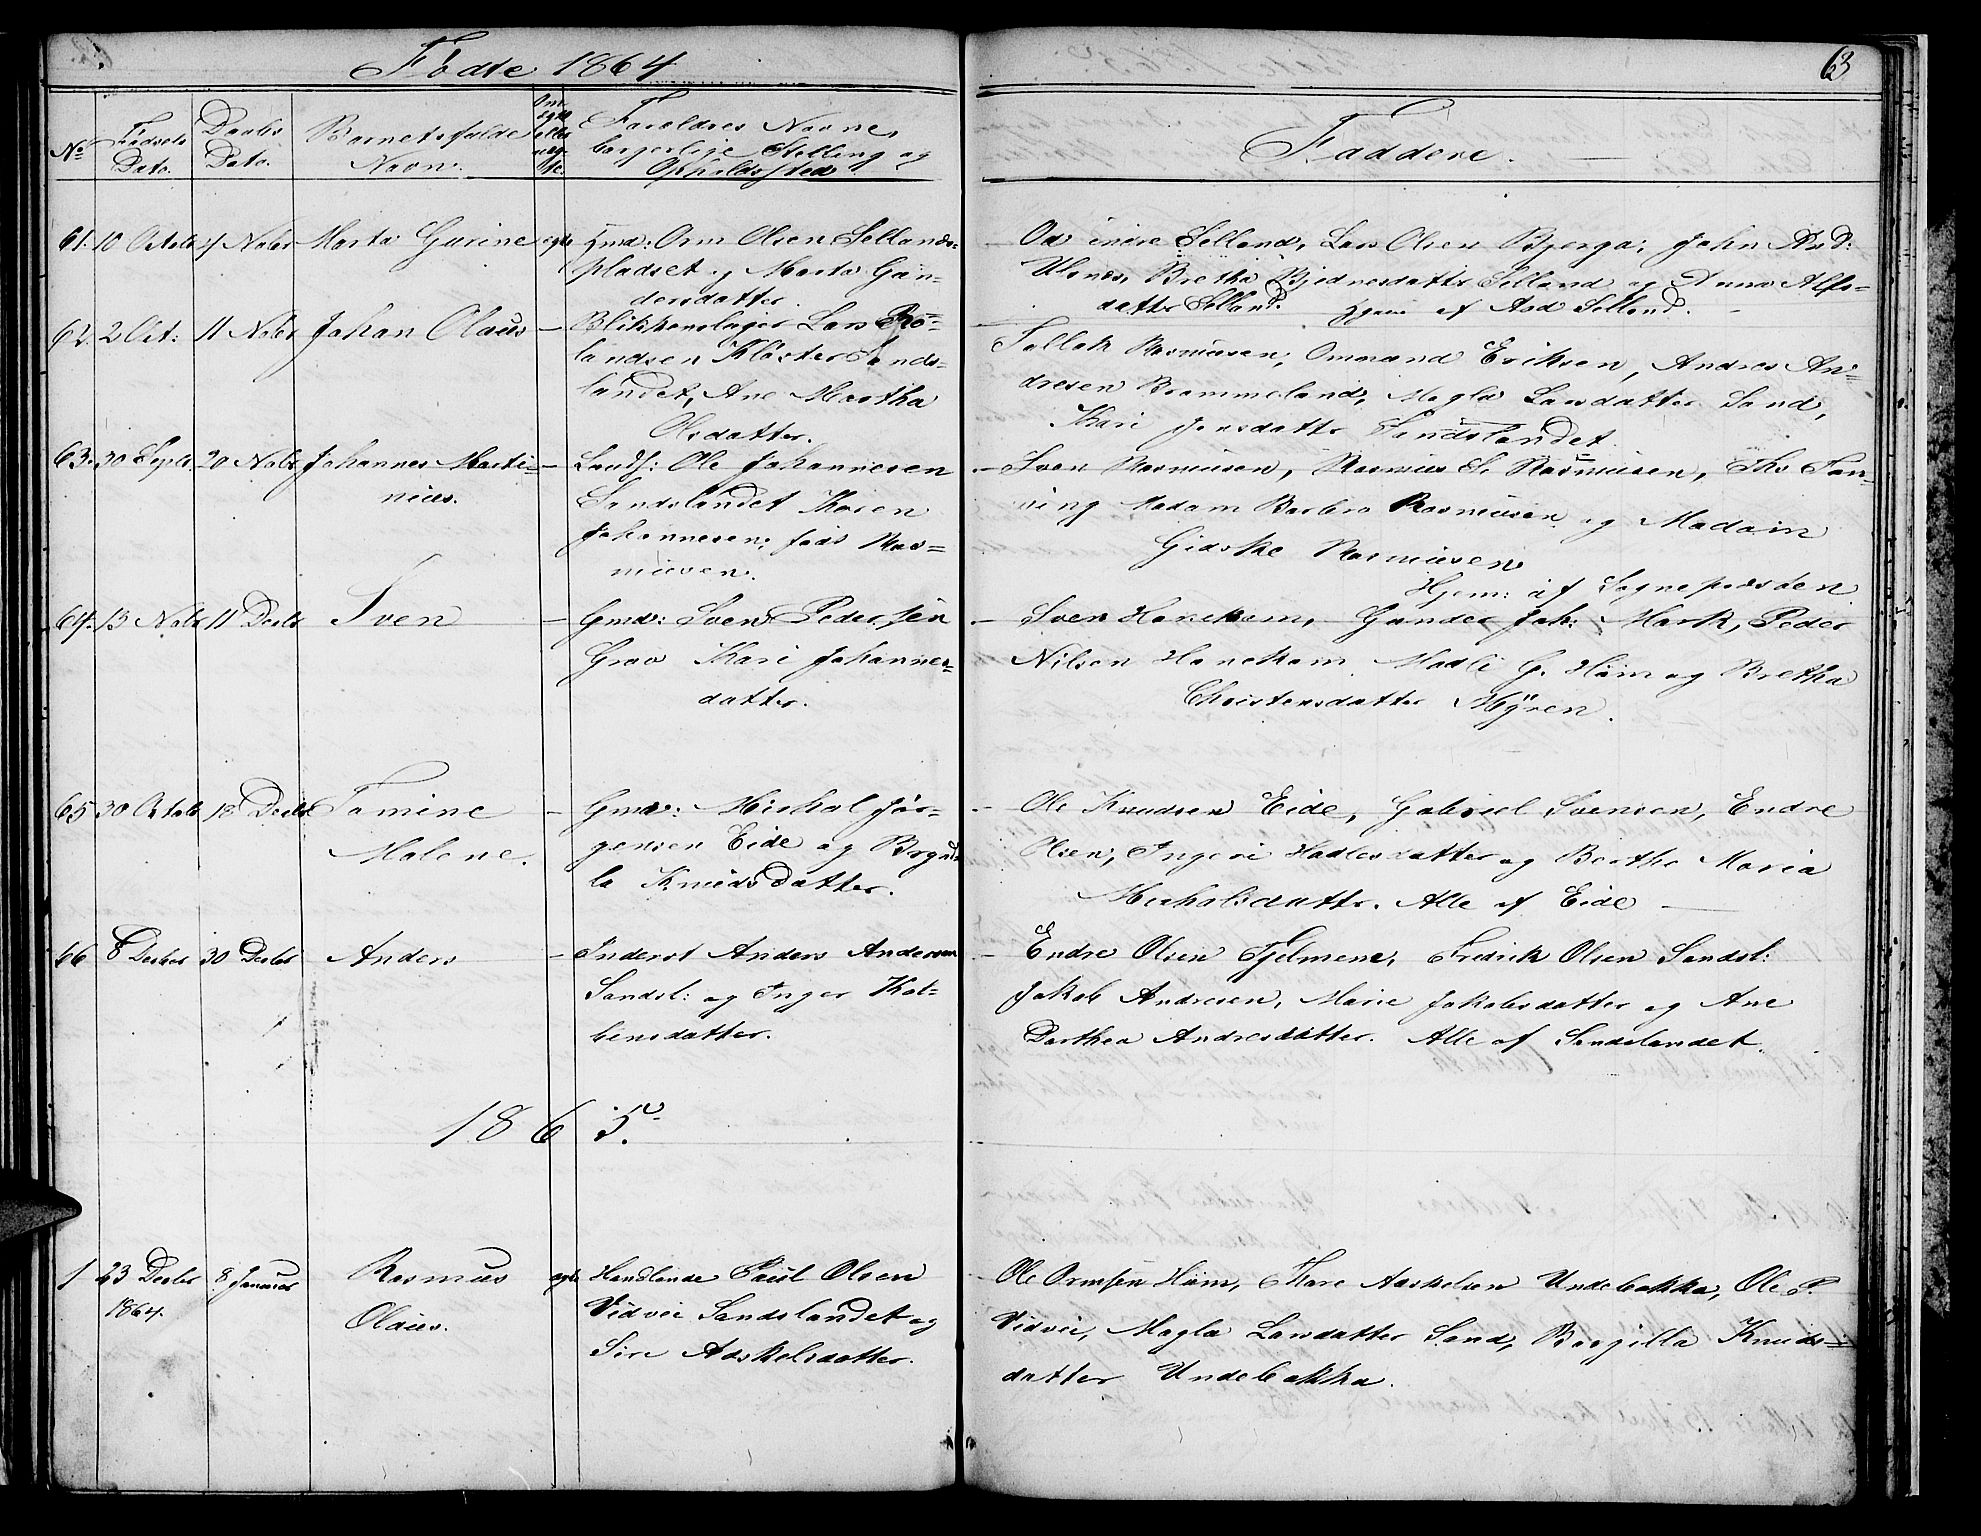 Fødte 1864
63
No
Fødsels Dato.
Daabs Dato.
Barnets fulde Navn.
Om ægte eller uægte.
Forældres Navne, borgerlige Stilling og Opholdssted
Faddere.
61. 10 Octob 4 Nobr Marta Gurine egte Hmd: Orm Olsen Sellands-
pladset og Marta Gun-
dersdatter.
Od indre Selland, Lars Olsen Bjerga, John And:
Ulsnes, Bretha Bjednesdatter Selland og Anna Alfs-
datter Selland. Hjem: af Asd Selland.
62. 2 Oct: 11 Nobr Johan Olaus — Blikkenslager Lars Ro-
landsen Kloster Sands-
landet, Ane Martha
Olsdatter.
Sellak Rasmusen, Omund Eriksen, Andres An-
dresen Brommeland, Magla Larsdatter Sand,
Kari Jensdattr Sandslandet.
63. 30 Septb 20 Nobr Johannes Marti-
nius.
— Landh: Ole Johannesen
Sandslandet Karen
Johannesen, føds Ras-
musen.
— Sven Rasmusen, Rasmus S. Rasmusen, Ths Fan-
ning Madam Barbra Rasmusen og Madam
Gidske Rasmusen
Hjem: af Sognepræsten
64. 13 Nobr 11 Decbr Sven — Gmd: Sven Pedersen
Grov Kari Johannes-
datter.
— Sven Hanekam, Gunder Joh: Mark, Peder
Nilsen Hanekam Madli G. Høim og Bretha
Christensdatter Myren.
65 30 Octob 18 Decbr Tomine
Malene.
— Gmd: Mickal Jør-
gensen Eide og Brynd-
la Knudsdatter.
— Ole Knudsen Eide, Gabriel Svensen, Endre
Olsen, Ingeri Hadlesdatter og Berthe Maria
Mickalsdattr. Alle af Eide —
66 8 Decbr 30 Decbr Anders — Inderst Anders Andersen
Sandsl: og Inger Kol-
bensdatter.
— Endre Olsen Tjelmene, Fredrik Olsen Sandsl:
Jakob Andresen, Marie Jakobsdatter og Ane
Dorthea Andresdatter. Alle af Sandslandet.
1865.
1 23 Decbr
1864.
8 Januar Rasmus
Olaus.
egte Handlende Paul Olsen
Vidvei Sandslandet og
Siri Adskelsdatter.
Ole Ormsen Høim, Thore Aaskelsen Undebakka, Ole P.
Vidvei, Magla Larsdatter Sand, Borgilla Knuds-
datter Undebakka.